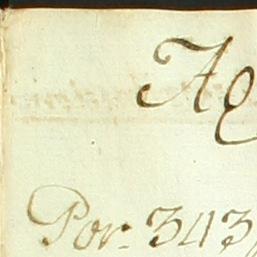 Ag
Por. 343